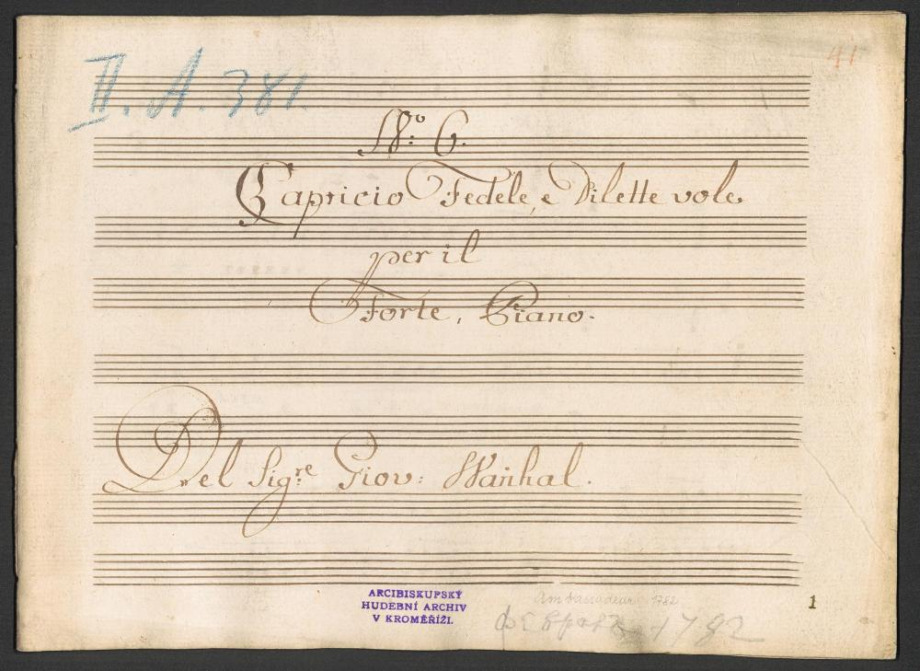 II. A. 381.
41
No: 6.
Capricio Fedele, e Dilette vole
per il
Forte, Piano.
Del Sigre: Giov: Wañhal.
ARCIBISKUPSKÝ
HUDEBNÍ ARCHIV
V KROMĚŘÍŽI.
Ambassadeur 1782
1792
1